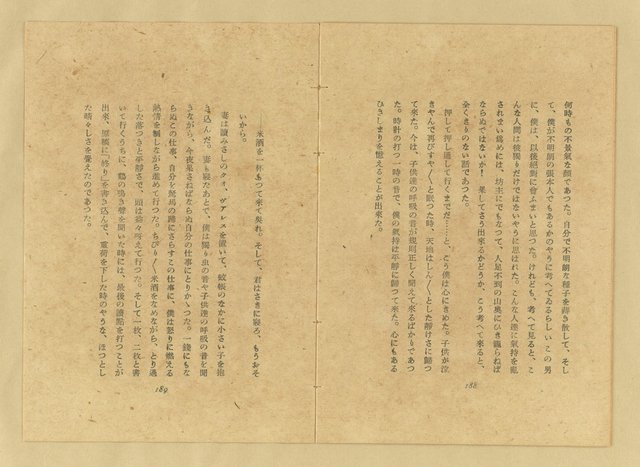 何時もの不景氣な顏であつた。自分で不明朗な種子を蒔き散して、そし
て、僕が不明朗の張本人でもあるかのやうに考へてゐるらしいこの男
に、僕は、以後絶對に會ふまいと思つた。けれども、考へて見ると、こ
んな人間は彼獨りだけではないやうに思はれた。こんな人達に氣持を亂
されまい爲めには、坊主にでもなつて、人足不到の山奧にひき籠らねば
ならぬではないか！　果してさう出來るかどうか、こう考へて來ると、
全くきりのない話であつた。
押して押し通して行くまでだ……と、こう僕は心にきめた。子供が泣
きやんで再びすや〳〵と眠つた時、天地はしん〳〵とした靜けさに歸つ
て來た。今は、子供達の呼吸の音が規則正しく聞えて來るばかりであつ
た。時計の打つ一時の音で、僕の氣持は平靜に歸つて來た。心にもある
ひきしまりを憶えることが出來た。
188
――米酒を一杯もつて來て呉れ。そして、君はさきに寢ろ、もうおそ
いから。
妻は讀みさしのクオ、ヴアレスを置いて、蚊帳のなかに小さい子を抱
き込んだ。妻も寢たあとで、僕は獨り虫の音や子供達の呼吸の音を聞
きながら、今夜果さねばならぬ自分の仕事にとりかゝつた。一錢にもな
らぬこの仕事、自分を駑馬の蹄にさらすこの仕事に、僕は怒りに燃える
熱情を制しながら進めて行つた。ちびり〳〵米酒をなめながら、とり過
した落つきと平靜さで、頭は益々冴えて行つた。そして一枚、二枚と書
いて行くうちに、鷄の鳴き聲を聞いた時には、最後の讀點を打つことが
出來、原稿に「終り」を書き込んで、重荷を下した時のやうな、ほつとし
た晴々しさを覺えたのであつた。
189